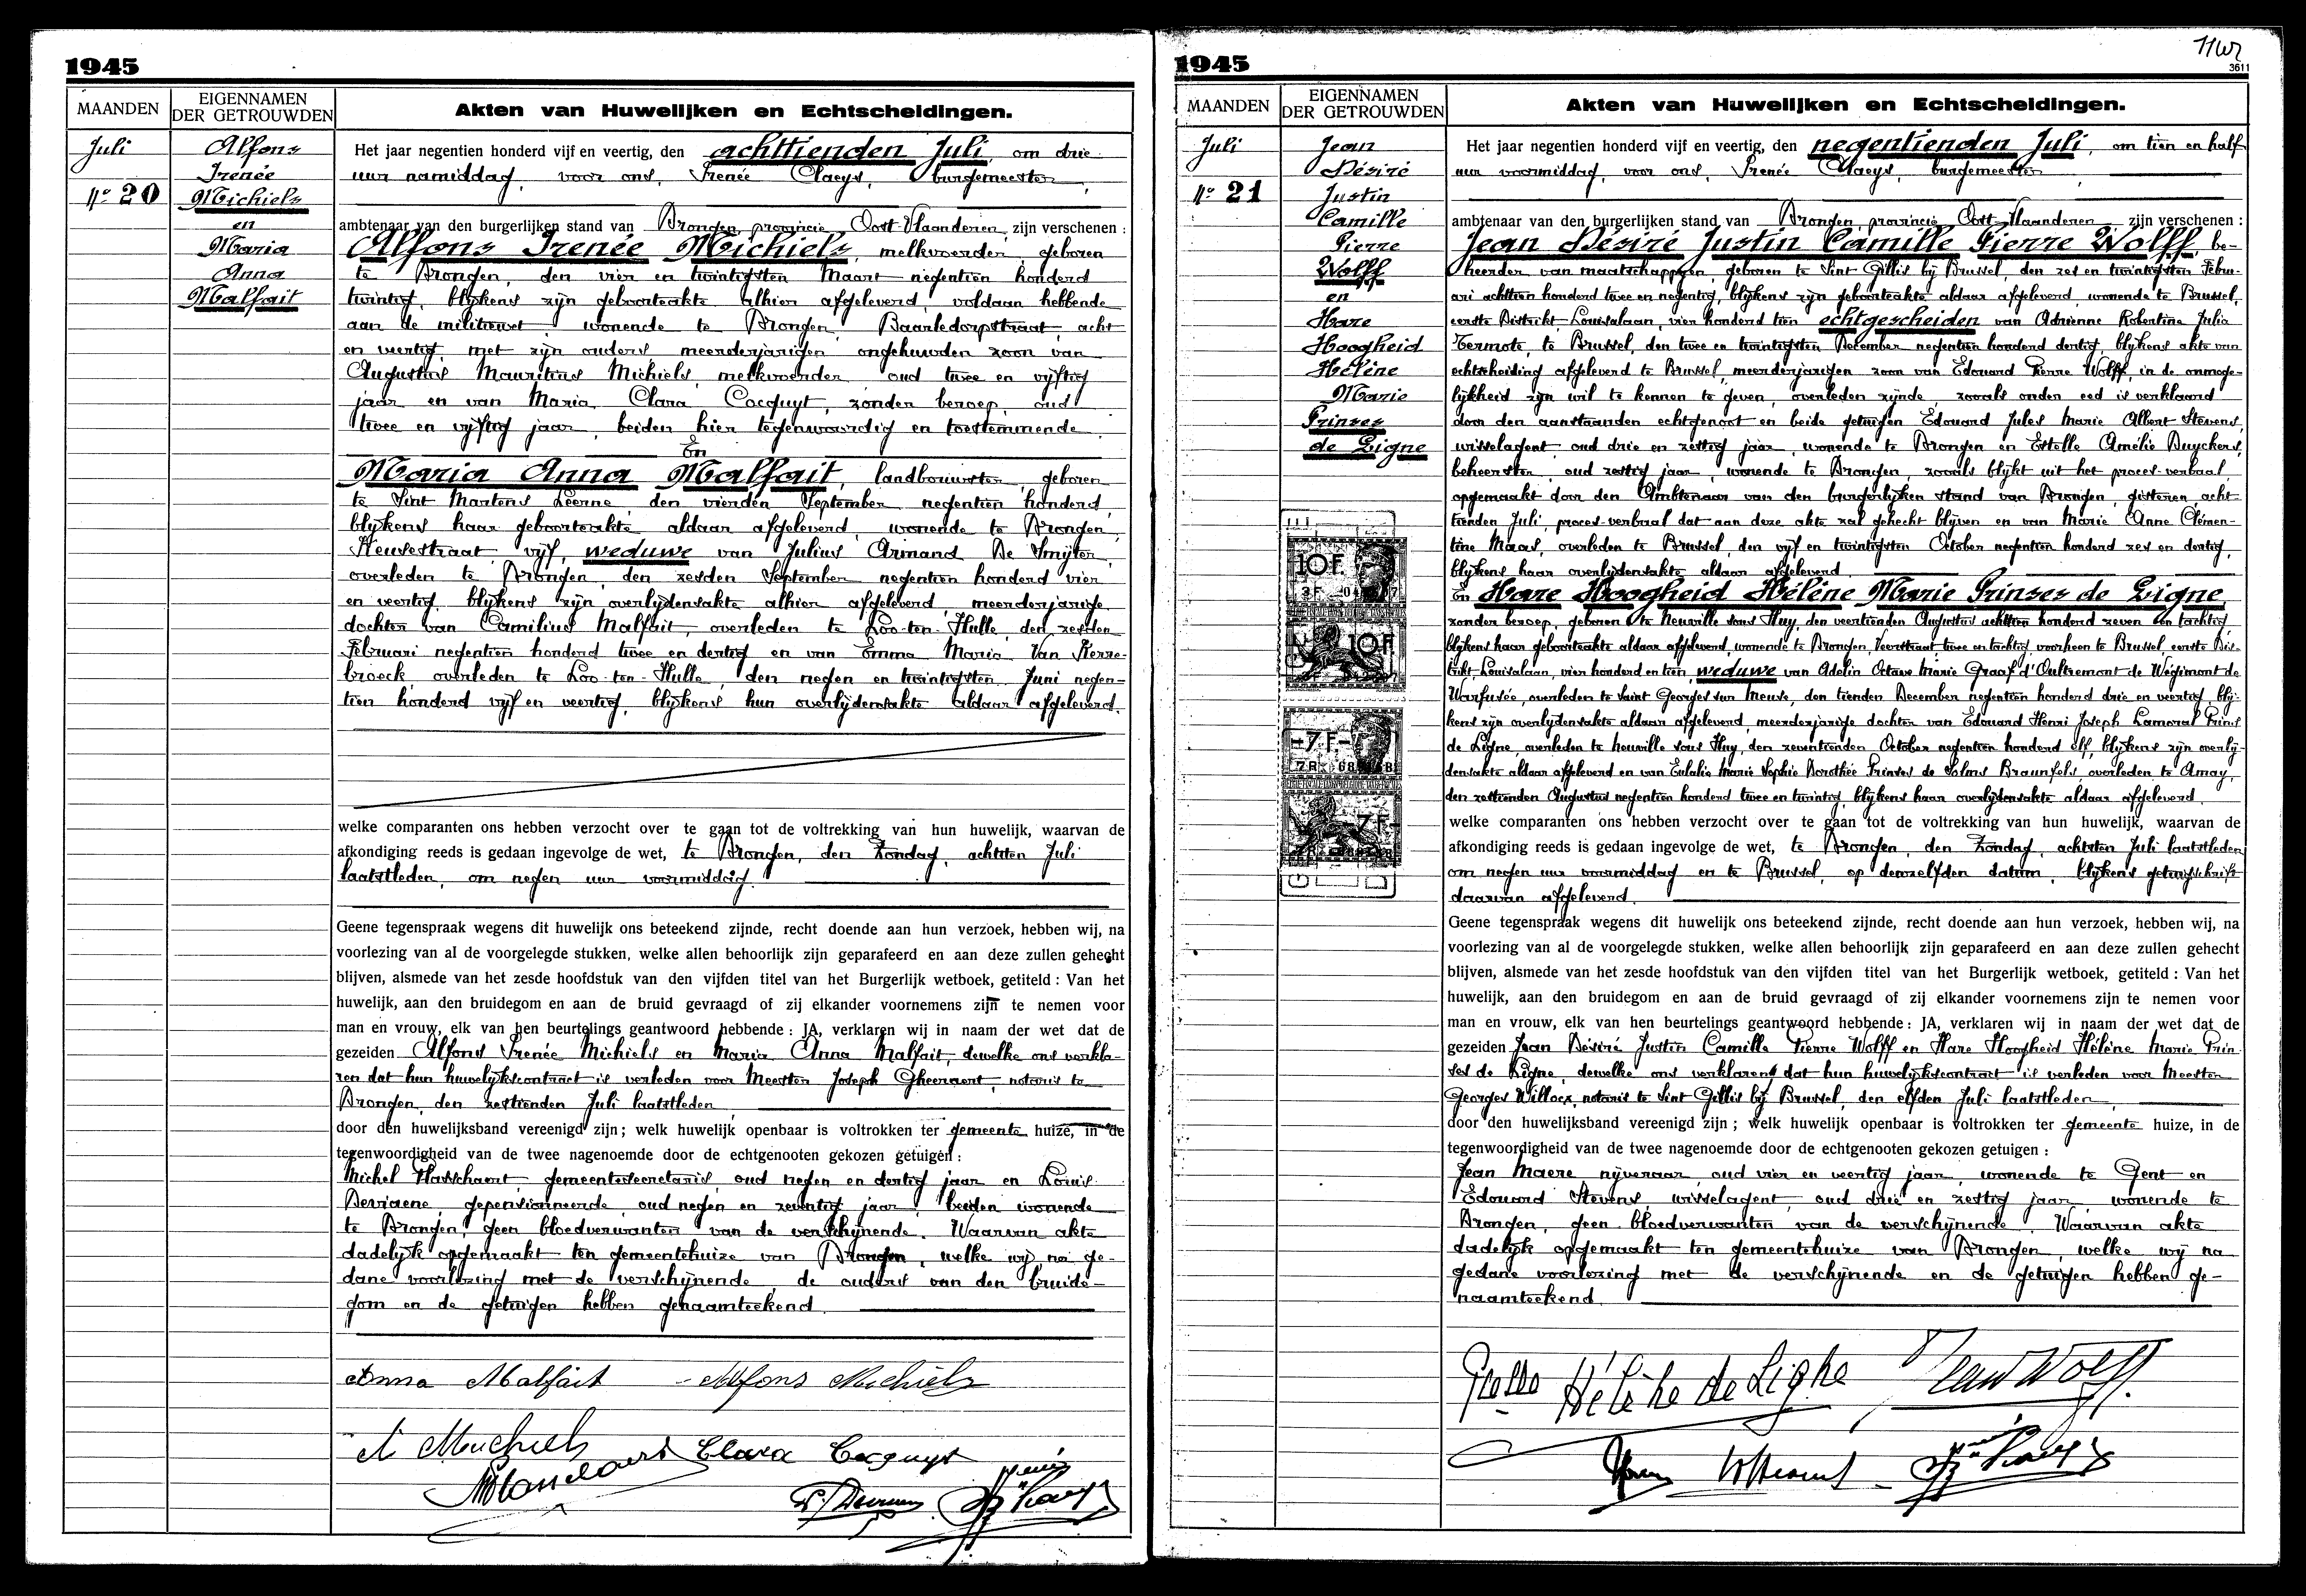 1945
MAANDEN
EIGENNAMEN
DER GETROUWDEN
Akten van Huwelijken en Echtscheidingen.
Juli
No 20
Alfons
Irenée
Michiels
en
Maria
Anna
Malfait
Het jaar negentien honderd vijf en veertig, den achttienden Juli, om drie
uur namiddag, voor ons, Irenée Claeys, burgemeester,
ambtenaar van den burgerlijken stand van Drongen, provincie Oost-Vlaanderen, zijn verschenen :
Alfons Irenée Michiels, melkvoerder, geboren
te Drongen, den vier en twintigsten Maart negentien honderd
twintig, blijkens zijn geboorteakte alhier afgeleverd, voldaan hebbende
aan de militiewet, wonende te Drongen, Baarledorpstraat, acht
en veertig, met zijn ouders, meerderjarigen ongehuwden zoon van
Augustus Mauritius Michiels, melkvoerder, oud twee en vijftig
jaar en van Maria Clara Cocquyt, zonder beroep, oud
twee en vijftig jaar, beiden hier tegenwoordig en toestemmende.
En
Maria Anna Malfait, landbouwster, geboren
te Sint Martens Leerne, den vierden September negentien honderd,
blijkens haar geboorteakte aldaar afgeleverd, wonende te Drongen,
Heusestraat, vijf, weduwe van Julius Armand De Smijter,
overleden te Drongen, den zesden September negentien honderd vier
en veertig, blijkens zijn overlijdensakte alhier afgeleverd, meerderjarige
dochter van Camilius Malfait, overleden te Loo-ten-Hulle, den zesden
Februari negentien honderd twee en dertig en van Emma Maria Van Kerre-
broeck, overleden te Loo-ten-Hulle, den negen en twintigsten Juni negen-
tien honderd vijf en veertig, blijkens hun overlijdensakte aldaar afgeleverd.
welke comparanten ons hebben verzocht over te gaan tot de voltrekking van hun huwelijk, waarvan de
afkondiging reeds is gedaan ingevolge de wet, te Drongen, den Zondag, achtsten Juli
laatstleden, om negen uur voormiddag.
Geene tegenspraak wegens dit huwelijk ons beteekend zijnde, recht doende aan hun verzoek, hebben wij, na
voorlezing van al de voorgelegde stukken, welke allen behoorlijk zijn geparafeerd en aan deze zullen gehecht
blijven, alsmede van het zesde hoofdstuk van den vijfden titel van het Burgerlijk wetboek, getiteld : Van het
huwelijk, aan den bruidegom en aan de bruid gevraagd of zij elkander voornemens zijn te nemen voor
man en vrouw, elk van hen beurtelings geantwoord hebbende : JA, verklaren wij in naam der wet dat de
gezeiden Alfons Irenée Michiels en Maria Anna Malfait, dewelke ons verkla-
ren dat hun huwelijkscontract is verleden voor Meester Joseph Gheeraert, notaris te
Drongen, den zestienden Juli laatstleden,
door den huwelijksband vereenigd zijn ; welk huwelijk openbaar is voltrokken ter gemeente huize, in de
tegenwoordigheid van de twee nagenoemde door de echtgenooten gekozen getuigen :
Michel Hasschaert, gemeentesecretaris, oud negen en dertig jaar en Louis
Devriaene, gepensionneerde, oud negen en zeventig jaar, beiden wonende
te Drongen, geen bloedverwanten van de verschijnende. Waarvan akte
dadelijk opgemaakt ten gemeentehuize van Drongen, welke wij na ge-
dane voorlezing met de verschijnende, de ouders van den bruide-
gom en de getuigen hebben genaamteekend.
Anna Malfait Alfons Michiels
A Michiels Clara Cocquyt
1945
3611
MAANDEN
EIGENNAMEN
DER GETROUWDEN
Akten van Huwelijken en Echtscheidingen.
Juli
No 21
Jean
Désiré
Justin
Camille
Pierre
Wolff
en
Hare
Hoogheid
Hélène
Marie
Prinses
de Ligne
10 F.
10 F
-7 F-
7 F-
Het jaar negentien honderd vijf en veertig, den negentienden Juli, om tien en half
uur voormiddag, voor ons, Irenée Claeys, burgemeester
ambtenaar van den burgerlijken stand van Drongen, provincie Oost-Vlaanderen, zijn verschenen :
Jean Désiré Justin Camille Pierre Wolff, be-
heerder van maatschappijen, geboren te Sint Gillis bij Brussel, den zes en twintigsten Febru-
ari achttien honderd twee en negentig, blijkens zijn geboorteakte aldaar afgeleverd, wonende te Brussel,
eerste Distrikt, Louisalaan, vier honderd tien echtgescheiden van Adrienne Robertine Julia
Termote, te Brussel, den twee en twintigsten December negentien honderd dertig, blijkens akte van
echtscheiding afgeleverd te Brussel, meerderjarigen zoon van Edouard Pierre Wolff, in de onmoge-
lijkheid zijn wil te kennen te geven, overleden zijnde, zooals onder eed is verklaard
door den aanstaanden echtgenoot en beide getuigen Edouard Jules Marie Albert Stevens,
wisselagent, oud drie en zestig jaar, wonende te Drongen en Estelle Amélie Buyckens,
beheerster, oud zestig jaar, wonende te Drongen, zooals blijkt uit het proces-verbaal
opgemaakt door den Ambtenaar van den burgerlijken stand van Drongen, gisteren, acht-
tienden Juli, proces-verbaal dat aan deze akte zal gehecht blijven en van Marie Anne Clémen-
tine Maas, overleden te Brussel, den vijf en twintigsten October negentien honderd zes en dertig,
blijkens haar overlijdensakte aldaar afgeleverd.
En Hare Hoogheid Hélène Marie Prinses de Ligne,
zonder beroep, geboren te Neuville sous Huy, den veertienden Augustus achttien honderd zeven en tachtig,
blijkens haar geboorteakte aldaar afgeleverd, wonende te Drongen, Veerstraat, twee en tachtig, voorheen te Brussel, eerste Dis-
trikt, Louisalaan, vier honderd en tien, weduwe van Adelin Octave Marie Graaf d'Oultremont de Wégimont de
Warfusée, overleden te Saint Georges sur Meuse, den tienden December negentien honderd drie en veertig, blij-
kens zijn overlijdensakte aldaar afgeleverd, meerderjarige dochter van Edouard Henri Joseph Lamoral Prins
de Ligne, overleden te Neuville sous Huy, den zeventienden October negentien honderd elf, blijkens zijn overlij-
densakte aldaar afgeleverd en van Eulalie Marie Sophie Dorothée Prinses de Solms Braunfels, overleden te Amay,
den zestienden Augustus negentien honderd twee en twintig, blijkens haar overlijdensakte aldaar afgeleverd.
welke comparanten ons hebben verzocht over te gaan tot de voltrekking van hun huwelijk, waarvan de
afkondiging reeds is gedaan ingevolge de wet, te Drongen, den Zondag, achtsten Juli laatstleden
om negen uur voormiddag en te Brussel, op denzelfden datum, blijkens getuigschrift
daarvan afgeleverd.
Geene tegenspraak wegens dit huwelijk ons beteekend zijnde, recht doende aan hun verzoek, hebben wij, na
voorlezing van al de voorgelegde stukken, welke allen behoorlijk zijn geparafeerd en aan deze zullen gehecht
blijven, alsmede van het zesde hoofdstuk van den vijfden titel van het Burgerlijk wetboek, getiteld : Van het
huwelijk, aan den bruidegom en aan de bruid gevraagd of zij elkander voornemens zijn te nemen voor
man en vrouw, elk van hen beurtelings geantwoord hebbende : JA, verklaren wij in naam der wet dat de
gezeiden Jean Désiré Justin Camille Pierre Wolff en Hare Hoogheid Hélène Marie Prin-
ses de Ligne, dewelke ons verklaren dat hun huwelijkscontract is verleden voor Meester
Georges Willocx, notaris te Sint Gillis bij Brussel, den elfden Juli laatstleden,
door den huwelijksband vereenigd zijn ; welk huwelijk openbaar is voltrokken ter gemeente huize, in de
tegenwoordigheid van de twee nagenoemde door de echtgenooten gekozen getuigen :
Jean Maere, nijveraar, oud vier en veertig jaar, wonende te Gent en
Edouard Stevens, wisselagent, oud drie en zestig jaar, wonende te
Drongen, geen bloedverwanten van de verschijnende. Waarvan akte
dadelijk opgemaakt ten gemeentehuize van Drongen, welke wij na
gedane voorlezing met de verschijnende en de getuigen hebben ge-
naamteekend.
Hélène de Ligne Jean Wolff